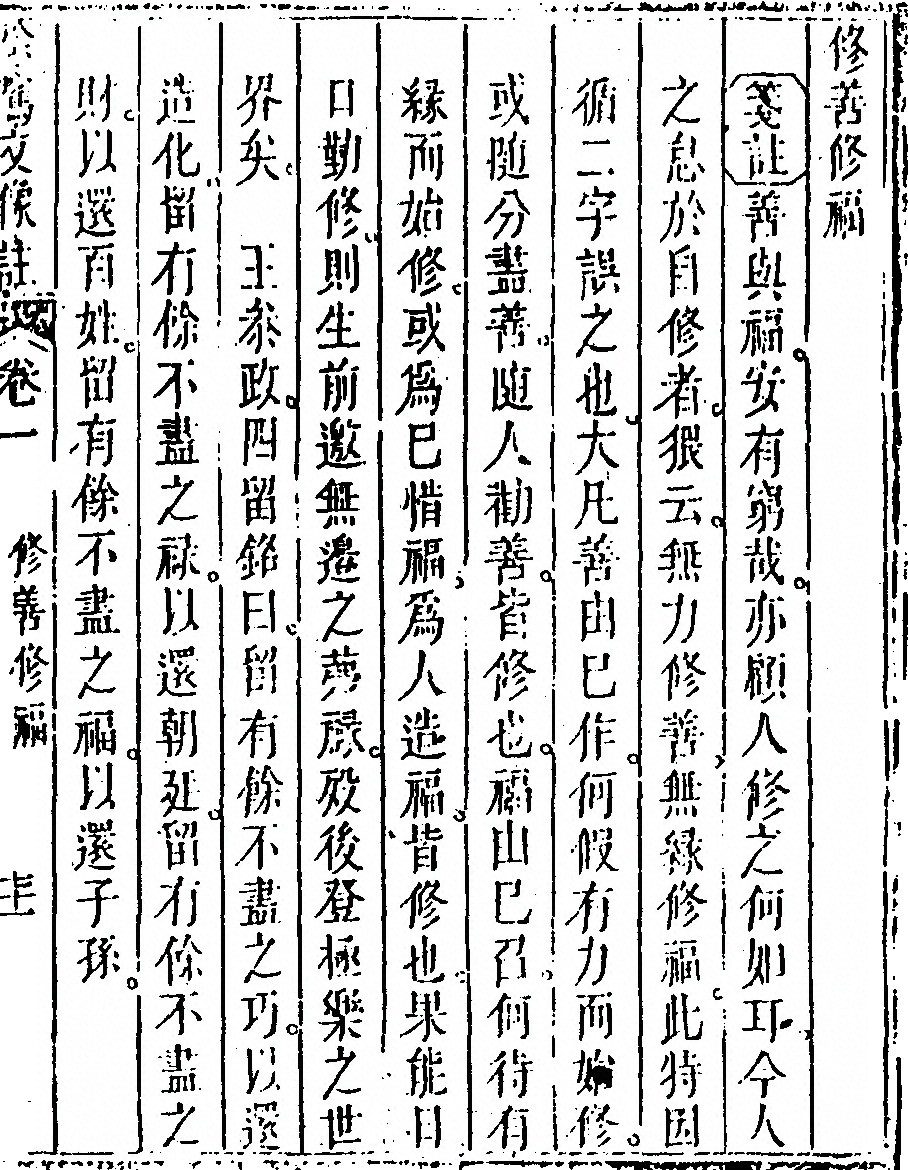 修善修福
箋註善與福安有窮哉亦願人修之何如耳今人
之怠於自修者猥云無力修善無緣修福此特因
循二字誤之也大凡善由己作何假有力而始修
或隨分盡善隨人勸善皆修也福由己召何待有
緣而始修或為己惜福為人造福皆修也果能日
日勤修則生前邀無邊之夢祿歿後登極樂之世
界矣　王參政四留銘曰留有餘不盡之巧以還
造化留有餘不盡之祿以還朝廷留有餘不盡之
財以還百姓留有餘不盡之福以還子孫
文像註 卷一 修善修福